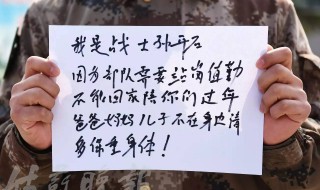 我是战士孙开石
因为部队需要站岗值勤
不能回家陪你们过年
爸爸妈妈儿子不在身边请
多保重身体！